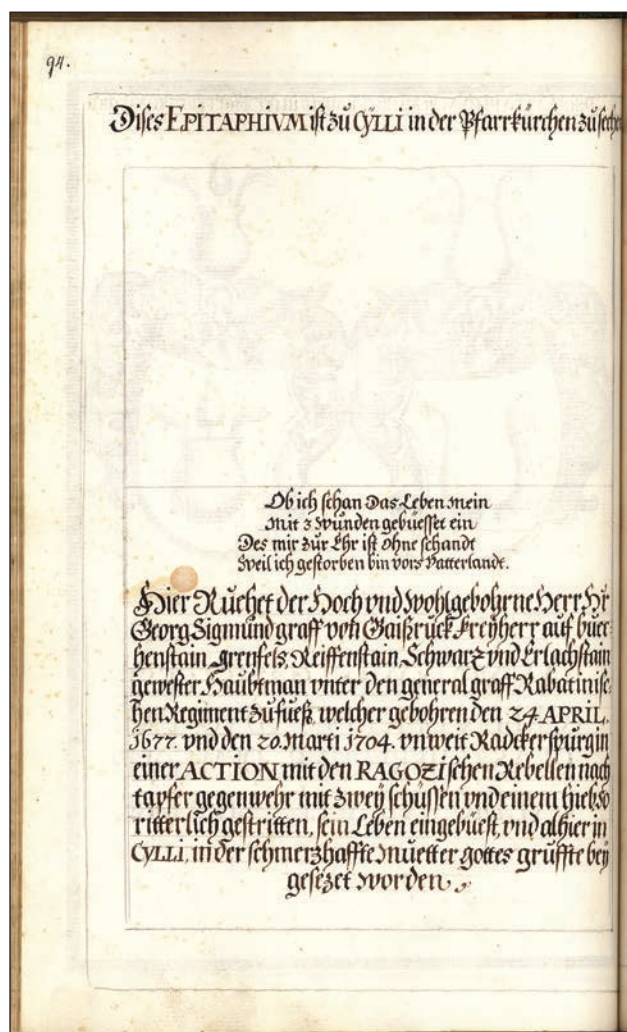 94.
Dises EPITAPHIVM ist zu CÿLLI in der Pfarrkürchen zu sechen
Ob ich schan das Leben mein
Mit 3 Wunden gebüesset ein
Des mir zur Ehr ist ohne schandt
Weil ich gestorben bin vors Vatterlandt.
Hier Ruehet der Hoch vnd Wohlgebohrne Herr Hr
Georg Sigmund graff von Gaißruck Freÿherr auf buec-
henstain Grenfels, Reiffenstain, Schwarz vnd Erlachstain
gewester Haubtman vnter den general graff Rabatinisc-
hen Regiment zu fueß, welcher gebohren den 24. APRIL.
1677. vnd den 20. Marti 1704. vnweit Radckerspurg in
einer ACTION mit den RAGOZischen Rebellen nach
tapfer gegenwehr mit zweÿ schüssen vnd einem hieb, so
ritterlich gestritten, sein Leben eingebüest, vnd alhier in
CYLLI, in der schmerzhaffte Muetter gottes gruffte beÿ
gesezet worden